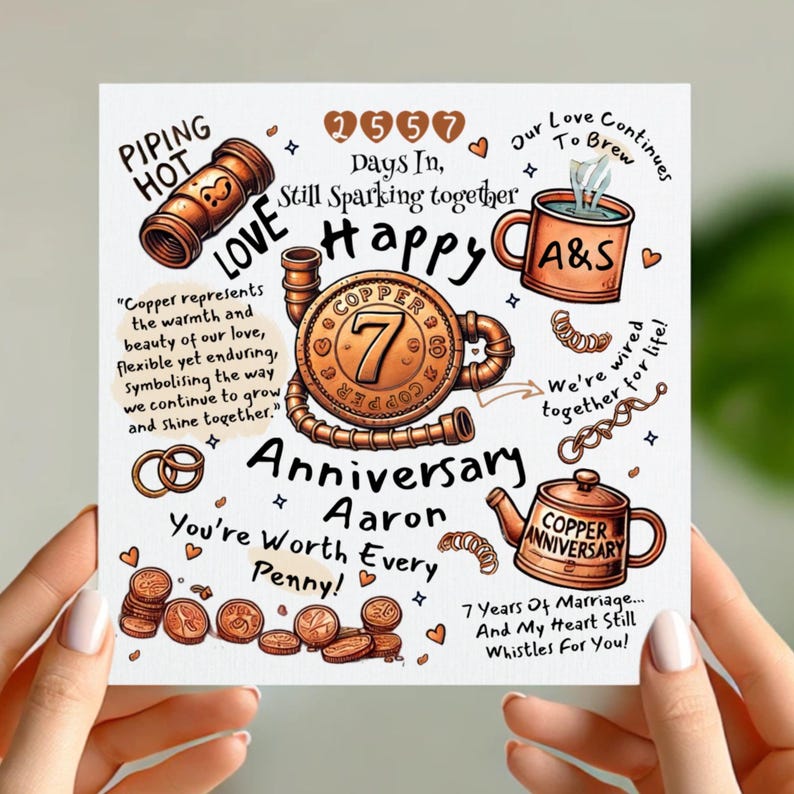 PIPING
HOT
LOVE
2557
Days In,
Still Sparking together
Our Love Continues
To Brew
A&S
Happy
COPPER
7
COPPER
"Copper represents
the warmth and
beauty of our love,
flexible yet enduring,
symbolising the way
we continue to grow
and shine together."
We're wired
together for life!
Anniversary
Aaron
You're Worth Every
Penny!
COPPER
ANNIVERSARY
7 Years Of Marriage...
And My Heart Still
Whistles For You!